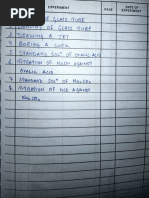 EXPERIMENT
PAGE
DATE OF
EXPERIMENT
OF GLASS TUBE
OF GLASS TUBE
DRAWING A JET
BORING A CORK
STANDARD SOLⁿ OF OXALIC ACID
TITRATION OF NaOH AGAINST
OXALIC ACID
STANDARD SOLⁿ OF Na₂CO₃
TITRATION OF HCl AGAINST
Na₂CO₃